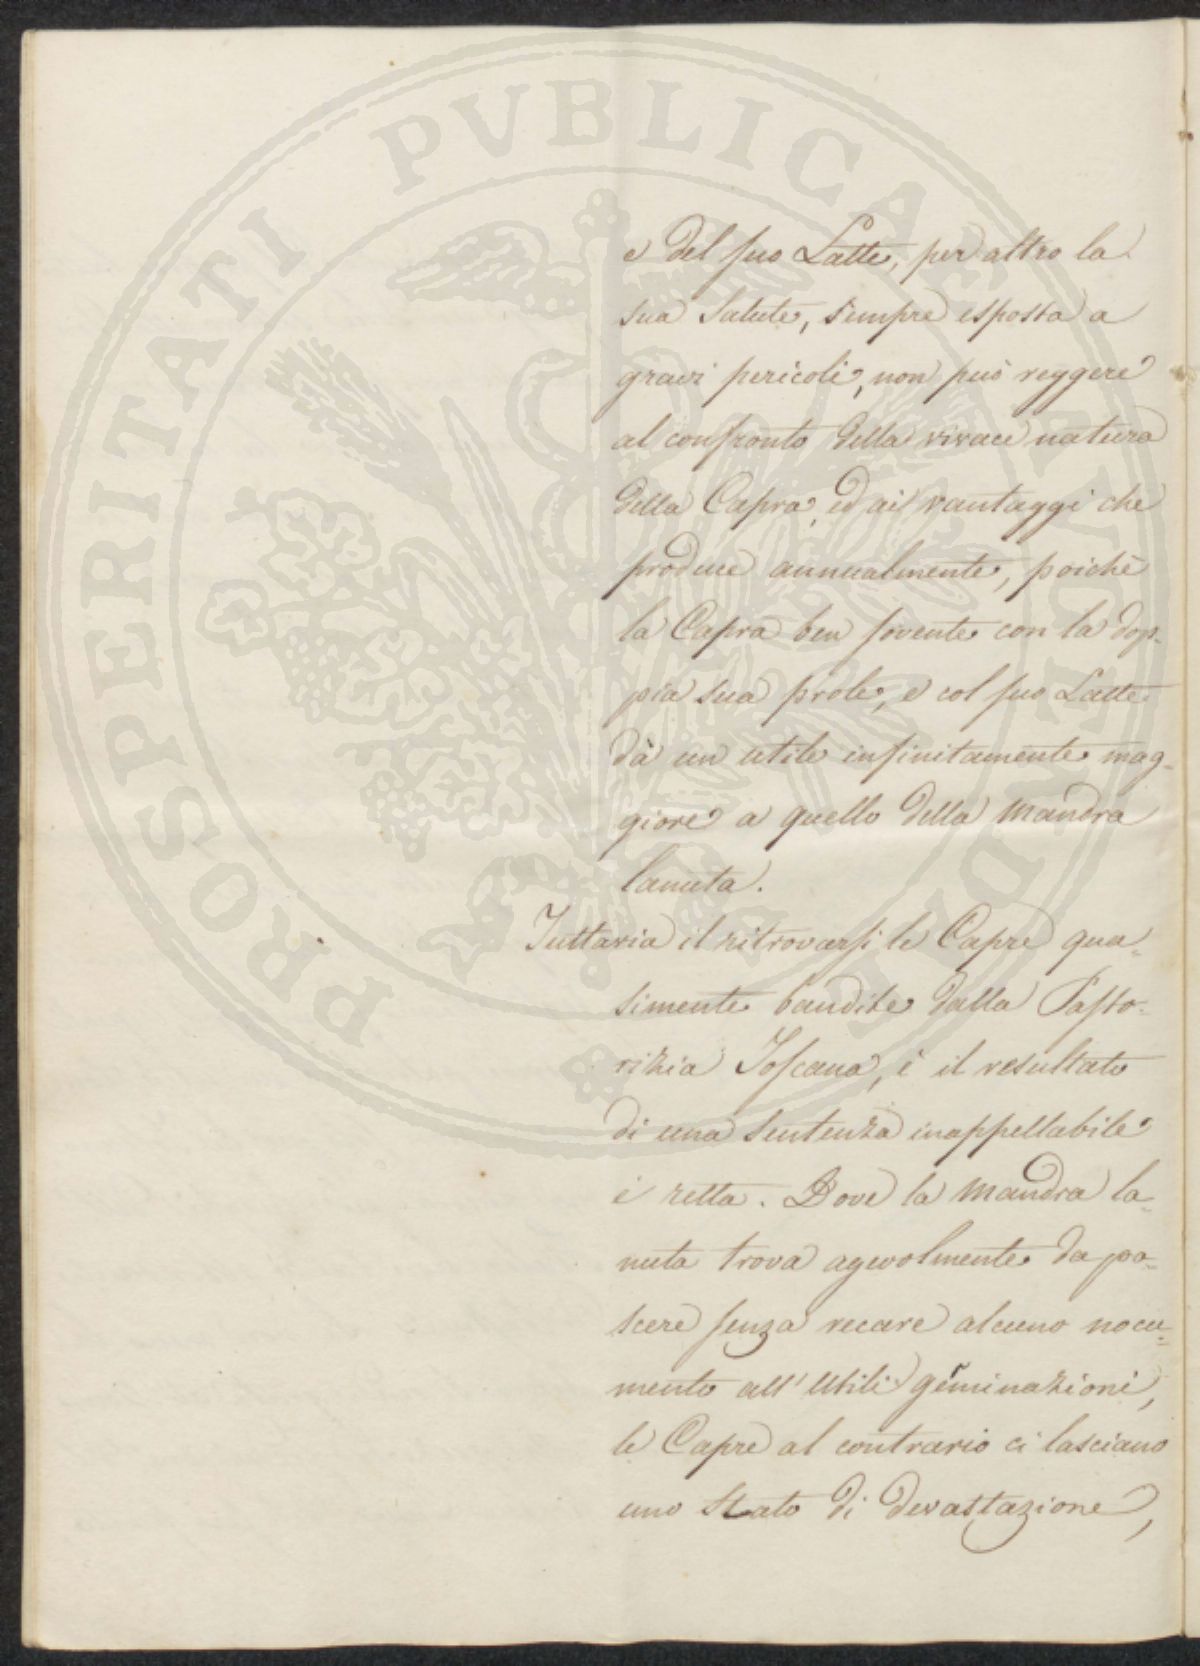 e del suo Latte, per altro la
sua Salute, sempre esposta a
gravi pericoli, non può reggere
al confronto della vivace natura
della Capra, ed ai vantaggi che
produce annualmente, poichè
la Capra ben sovente con la dop-
pia sua prole, e col suo Latte
dà un utile infinitamente mag-
giore a quello della Mandra
lanuta.
Tuttavia il ritrovarsi le Capre qua-
simente bandite dalla Pasto-
rizia Toscana, è il resultato
di una Sentenza inappellabile
e retta. Dove la Mandra la-
nuta trova agevolmente da pa-
scere senza recare alcuno nocu-
mento all'Utili gerMinazioni,
le Capre al contrario ci lasciano
uno Stato di devastazione,
PROSPERITATI PVBLICAE AVGENDAE